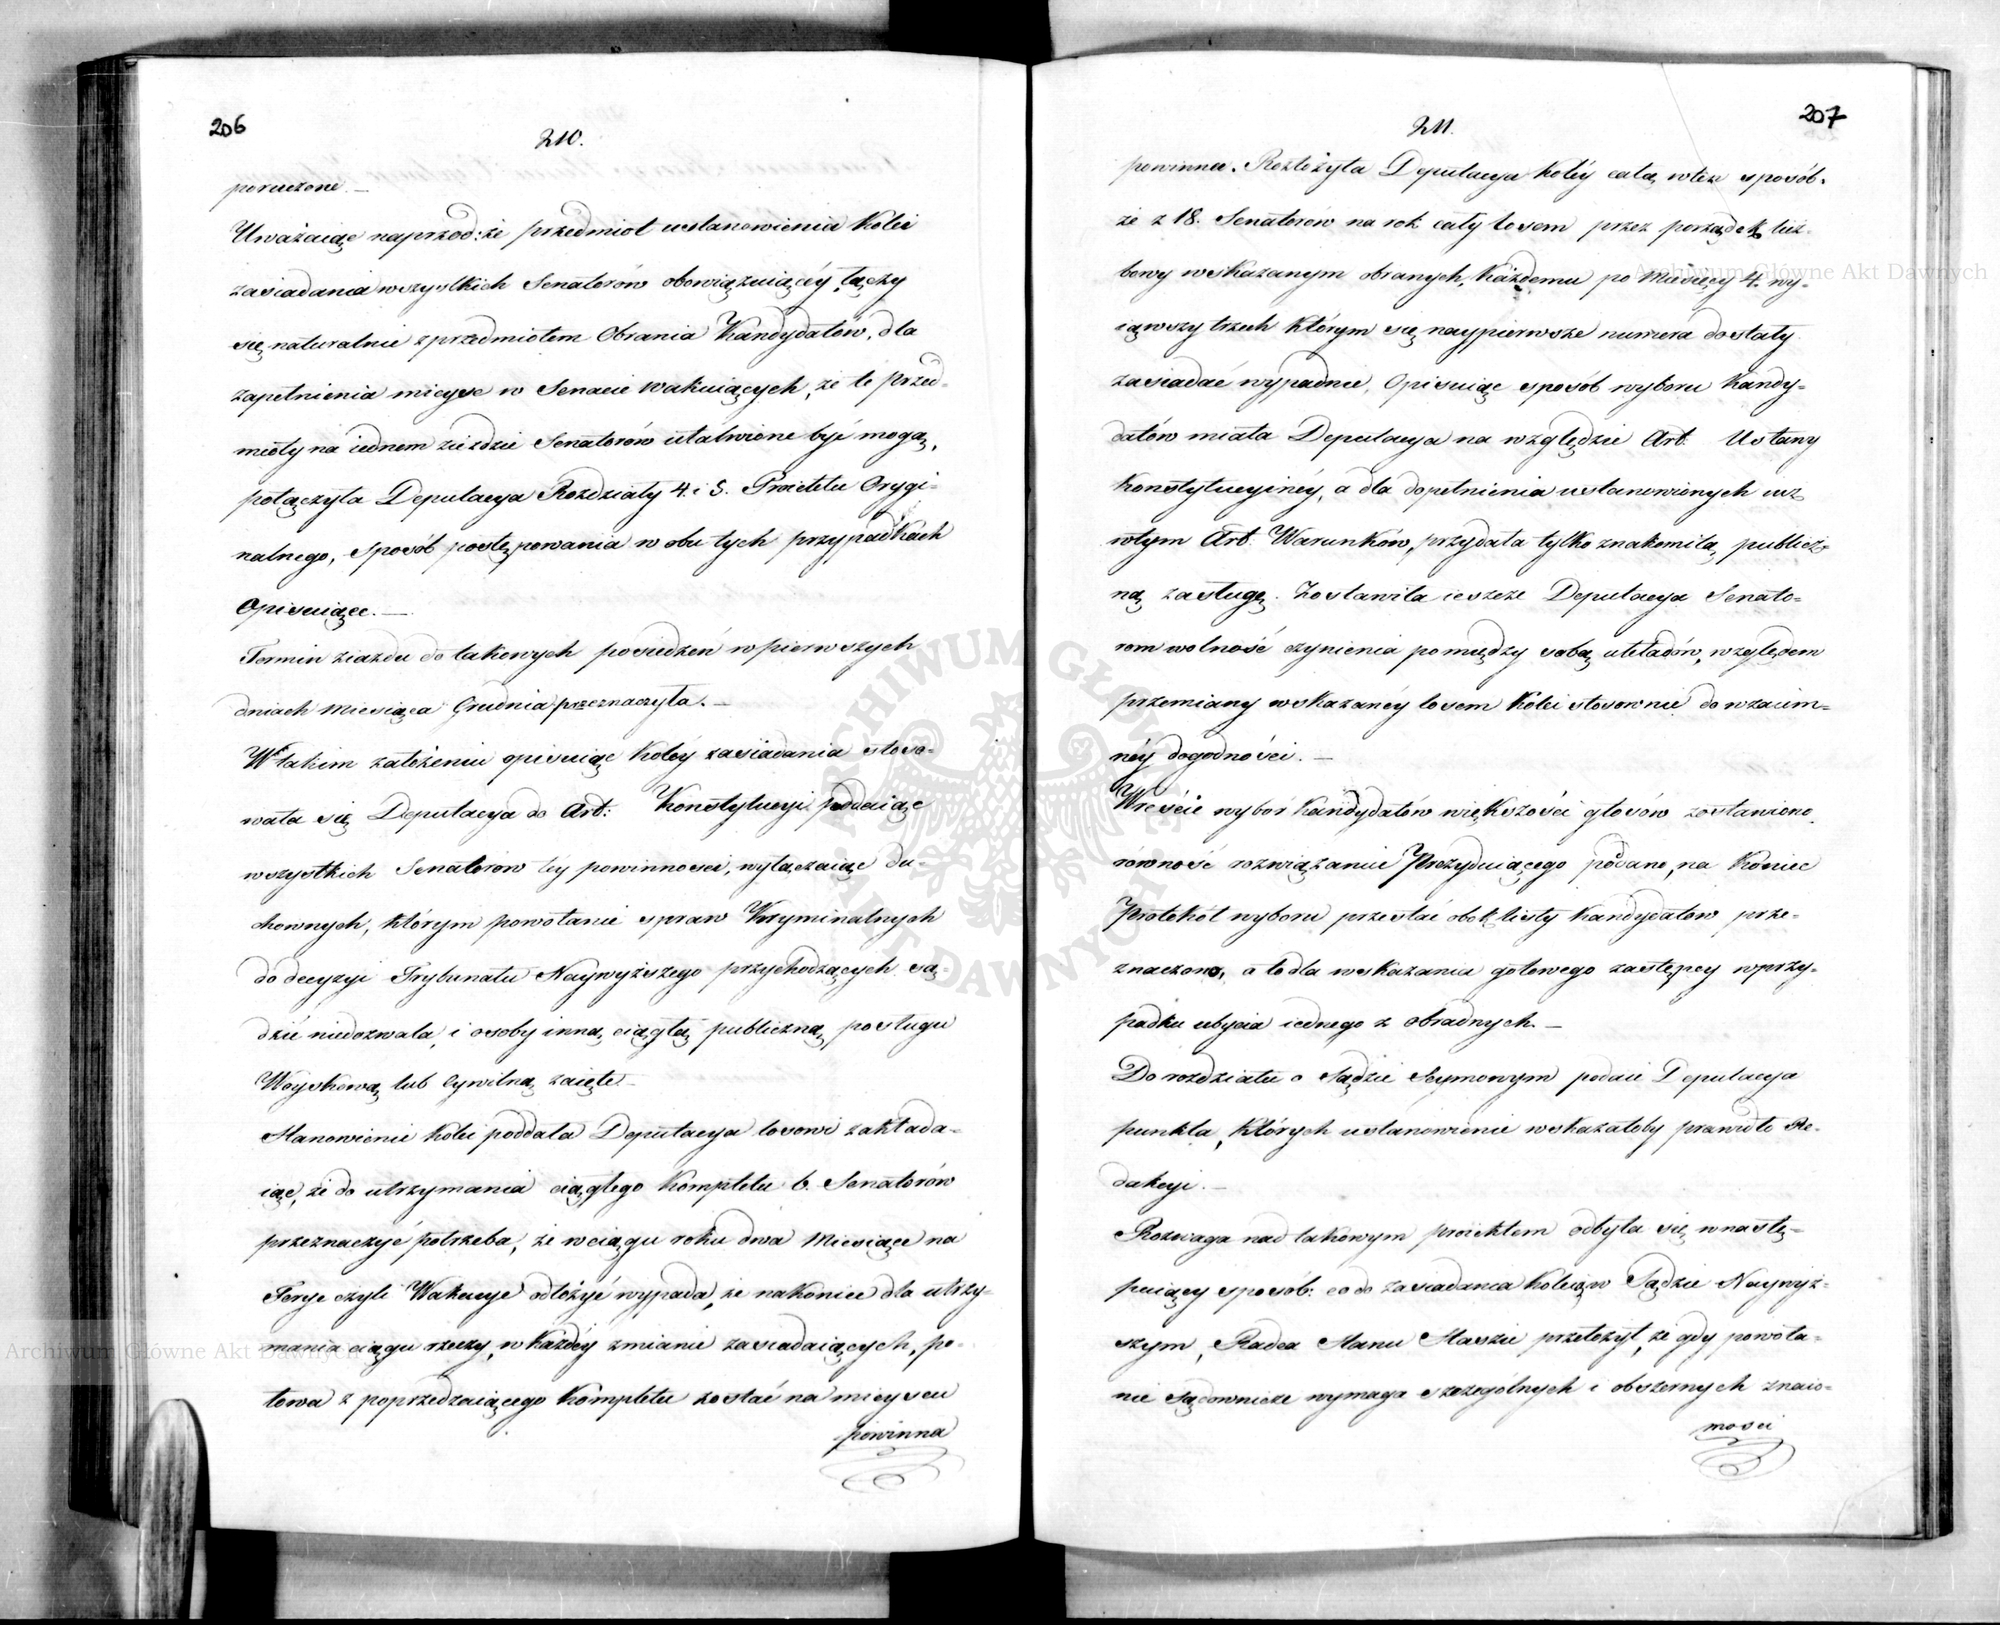 206
210.
poruczone. —
Uważaiąc naprzod: że przedmiot ustanowienia Kolei
zasiadania wszystkich Senatorów obowiązuiącéy, łączy
się naturalnie z przedmiotem Obrania Kandydatów, dla
zapełnienia mieysc w Senacie wakuiących, że te przed-
mioty na iednem zieździe Senatorów ułatwione być mogą,
połączyła Deputacya Rozdziały 4. i 5. Proiektu Orygi-
nalnego, sposób postępowania w obu tych przypadkach
Opisuiące. —
Termin ziazdu do takowych posiedzeń w pierwszych
dniach Miesiąca Grudnia przeznaczyła. —
W takim założeniu opisuiąc Koléy zasiadania stoso-
wała się Deputacya do Art: Konstytucyi poddaiąc
wszystkich Senatorow tey powinnosci, wyłączaiąc du-
chownych, którym powołanie spraw Kryminalnych
do decyzyi Trybunału Naywyższego przychodzących są-
dzić niedozwala, i osoby inną ciągłą publiczną posługu
Woyskową lub Cywilną zaięte —
Stanowienie Kolei poddała Deputacya losowi zakłada-
iąc, że do utrzymania ciągłego Kompletu 6. Senatorów
przeznaczyć potrzeba, że w ciągu roku dwa Miesiące na
Ferye czyli Wakacye odłożyć wypada, że nakoniec dla utrzy-
mania ciągu rzeczy, w każdéy zmianie zasiadaiących, po-
łowa z poprzedzaiącego Kompletu zostać na mieyscu
powinna
207
211.
powinna. Rozłożyła Deputacya Koléy całą w ten sposób.
że z 18. Senatorów na rok cały losem przez porządek licz-
bowy wskazanym obranych, Każdemu po Miesięcy 4. wy-
iąwszy trzech Którym się naypierwsze numera dostały
zasiadać wypadnie. Opisuiąc sposób wyboru Kandy-
datów miała Deputacya na względzie Art. Ustawy
Konstytucyinéy, a dla dopełnienia ustanowionych
w tym Art. Warunków, przydała tylko znakomitą, publicz-
ną zasługę. Zostawiła ieszcze Deputacya Senato-
rom wolność czynienia pomiędzy sobą układów, względem
przemiany wskazanéy losem Kolei stosownie do wzaiem-
néy dogodności. —
Wreście wybór Kandydatów większości głosów zostawiono,
równość rozwiązanie Prezyduiącego podano, na Koniec
Protokół wyboru przesłać obok listy Kandydatow prze-
znaczono, a to dla wskazania gotowego zastępcy w przy-
padku ubycia iednego z obradnych. —
Do rozdziału o Sądzie Seymowym podaie Deputacya
punkta, Których ustanowienie wskazałoby prawidło Re-
dakcyi. —
Rozwaga nad takowym proiektem odbyła się w nastę-
puiący sposób: co do zasiadania Koleią w Sądzie Naywyż-
szym, Radca Stanu Staszic przełożył, że gdy powoła-
nie Sądownicze wymaga szczególnych i obszernych znaio-
mosci
Archiwum Główne Akt Dawnych
Archiwum Główne Akt Dawnych
ARCHIWUM GŁÓWNE AKT DAWNYCH